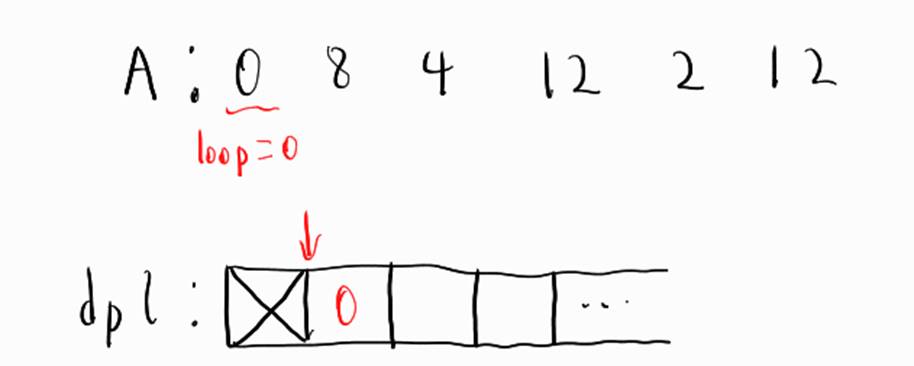 A: 0 8 4 12 2 12
loop=0
dpl: 0 ...